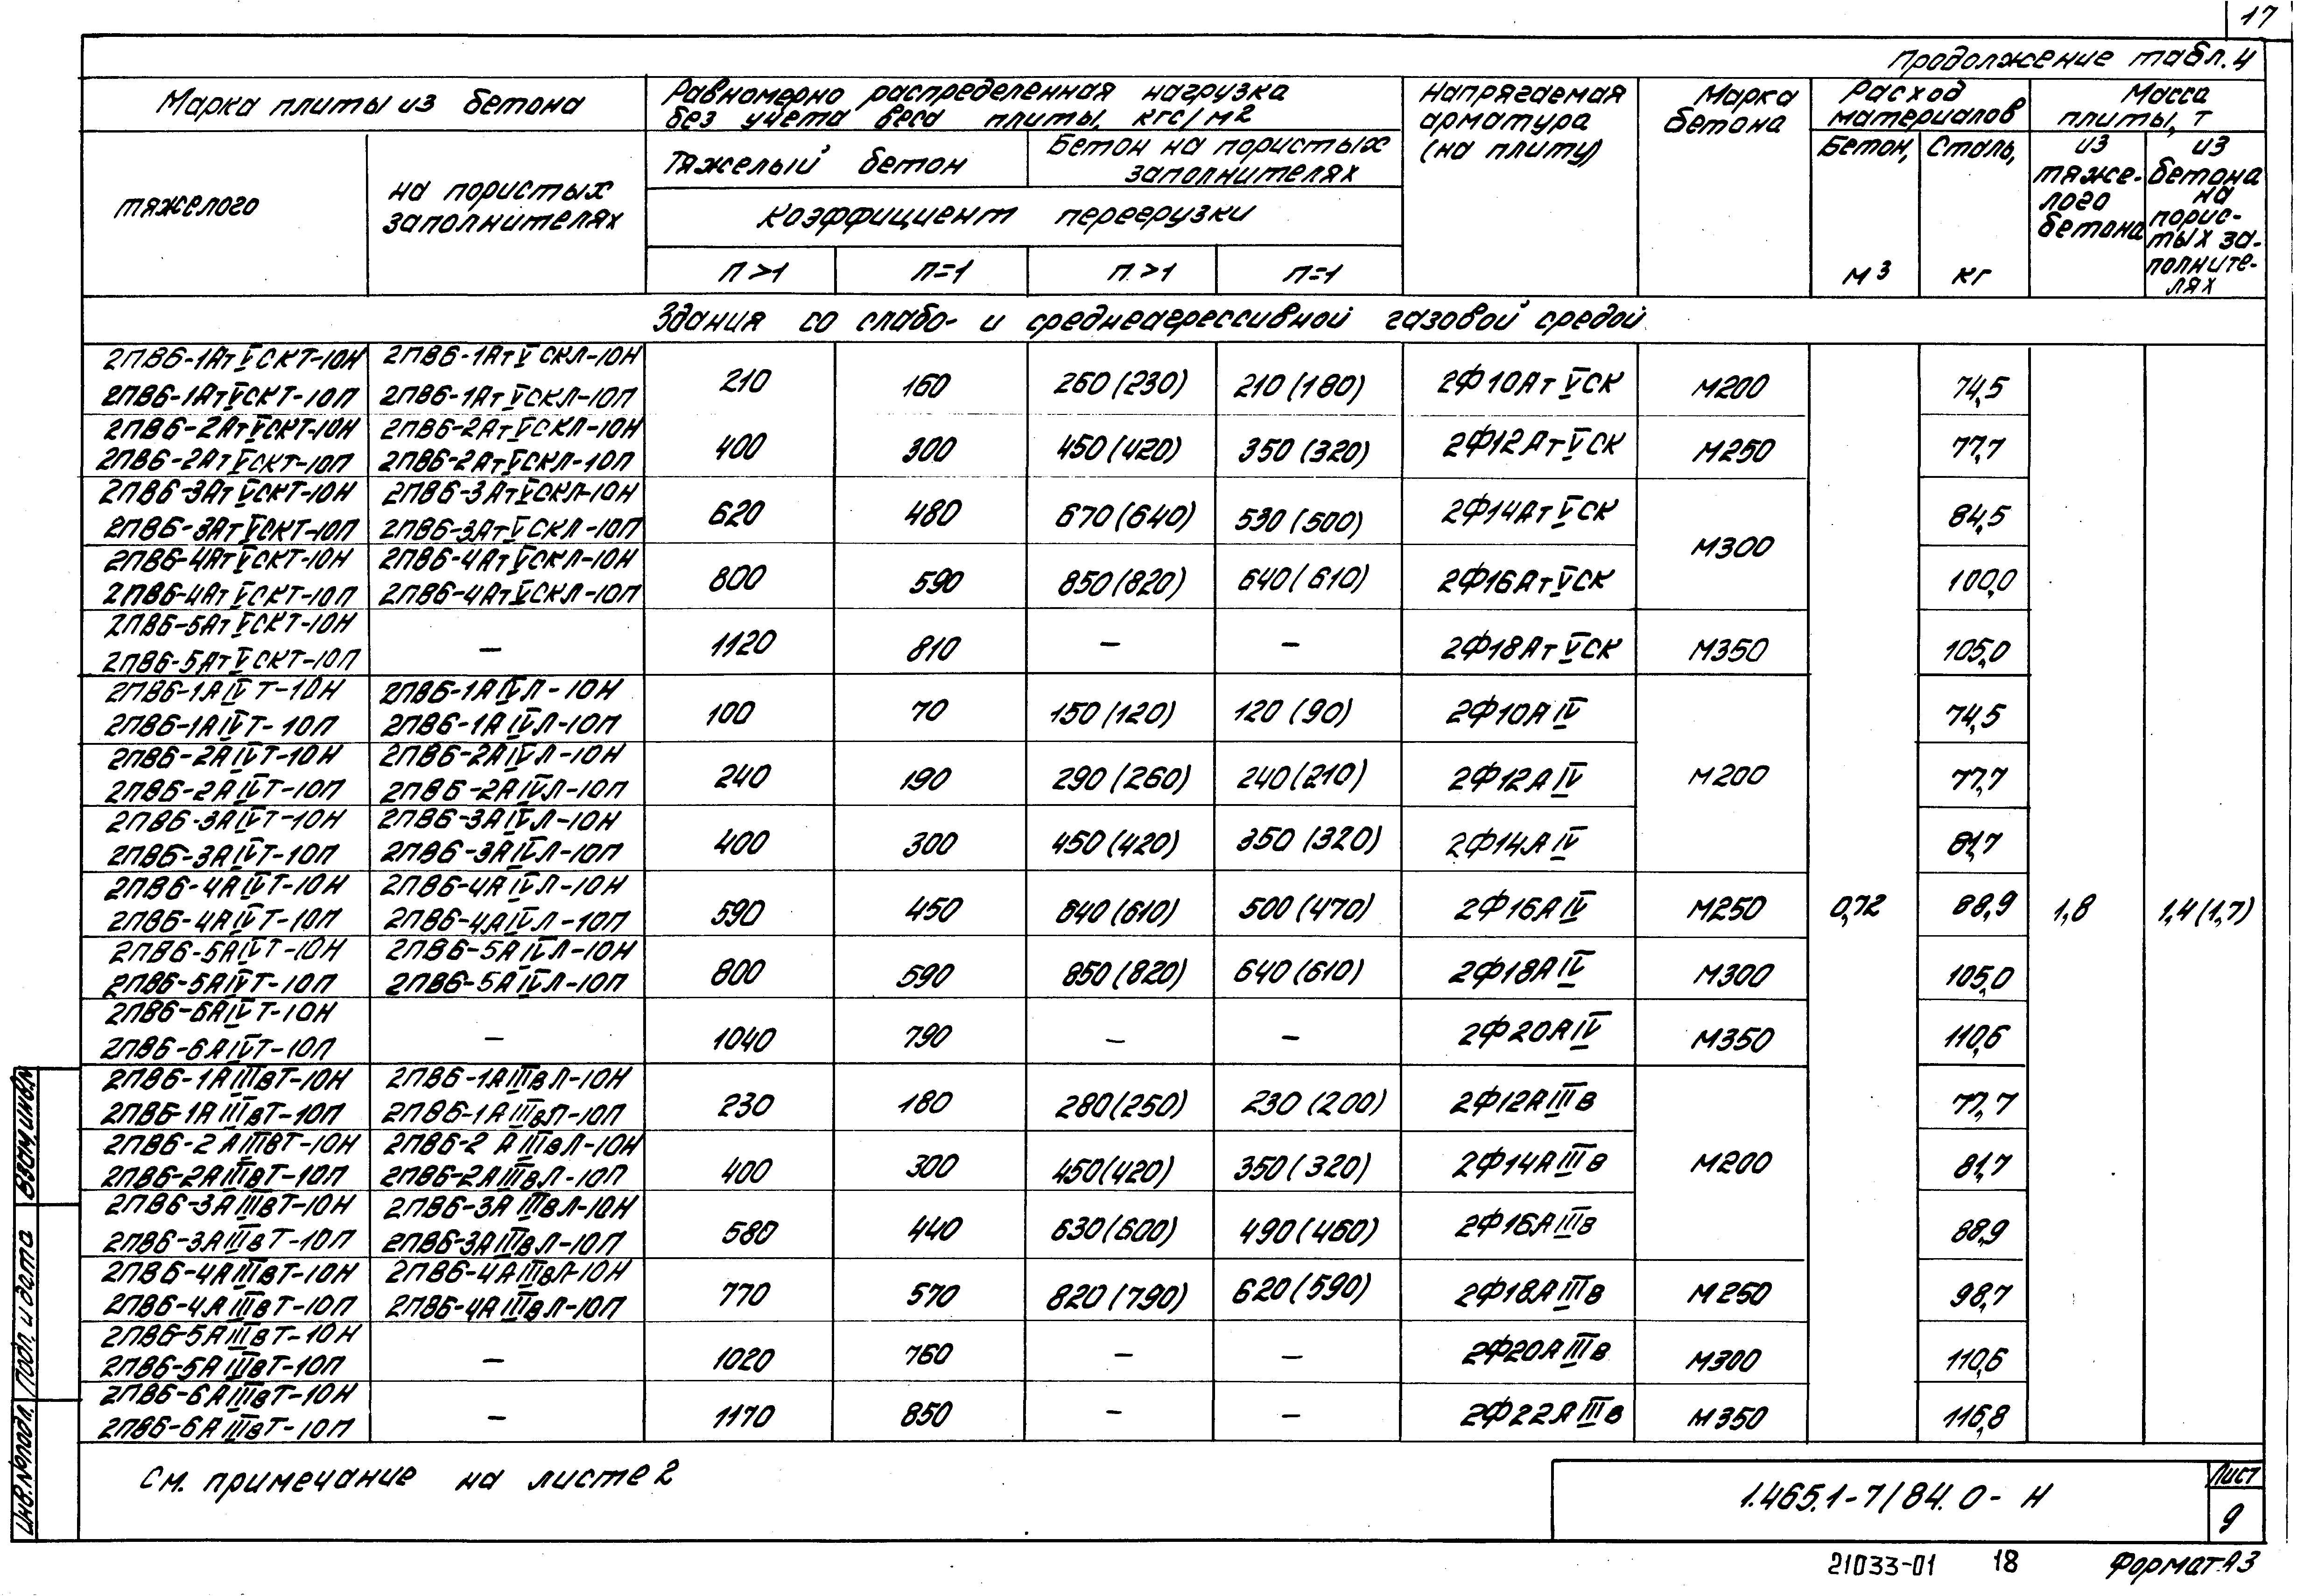 17
Продолжение табл. 4
Марка плиты из бетона
Равномерно распределенная нагрузка
без учета веса плиты, кгс/м2
Напрягаемая
арматура
(на плиту)
Марка
бетона
Расход
материалов
Масса
плиты, т
тяжелого
на пористых
заполнителях
Тяжелый бетон
Бетон на пористых
заполнителях
Коэффициент перегрузки
п>1 п=1 п>1 п=1
Бетон,
м3
Сталь,
кг
из
тяже-
лого
бетона
из
бетона
на
порис-
тых за-
полните-
лях
Здания со слабо- и среднеагрессивной газовой средой
2ПВ6-1АтVСКТ-10Н 2ПВ6-1АтVСКЛ-10Н
2ПВ6-1АтVСКТ-10П 2ПВ6-1АтVСКЛ-10П
210 160 260(230) 210(180) 2Ф10АтVСК М200 74,5
2ПВ6-2АтVСКТ-10Н 2ПВ6-2АтVСКЛ-10Н
2ПВ6-2АтVСКТ-10П 2ПВ6-2АтVСКЛ-10П
400 300 450(420) 350(320) 2Ф12АтVСК М250 77,7
2ПВ6-3АтVСКТ-10Н 2ПВ6-3АтVСКЛ-10Н
2ПВ6-3АтVСКТ-10П 2ПВ6-3АтVСКЛ-10П
620 480 670(640) 530(500) 2Ф14АтVСК 84,5
М300
2ПВ6-4АтVСКТ-10Н 2ПВ6-4АтVСКЛ-10Н
2ПВ6-4АтVСКТ-10П 2ПВ6-4АтVСКЛ-10П
800 590 850(820) 640(610) 2Ф16АтVСК 100,0
2ПВ6-5АтVСКТ-10Н
2ПВ6-5АтVСКТ-10П
– 1120 810 – – 2Ф18АтVСК М350 105,0
2ПВ6-1АIVТ-10Н 2ПВ6-1АIVЛ-10Н
2ПВ6-1АIVТ-10П 2ПВ6-1АIVЛ-10П
100 70 150(120) 120(90) 2Ф10АIV 74,5
2ПВ6-2АIVТ-10Н 2ПВ6-2АIVЛ-10Н
2ПВ6-2АIVТ-10П 2ПВ6-2АIVЛ-10П
240 190 290(260) 240(210) 2Ф12АIV М200 77,7
2ПВ6-3АIVТ-10Н 2ПВ6-3АIVЛ-10Н
2ПВ6-3АIVТ-10П 2ПВ6-3АIVЛ-10П
400 300 450(420) 350(320) 2Ф14АIV 81,7
2ПВ6-4АIVТ-10Н 2ПВ6-4АIVЛ-10Н
2ПВ6-4АIVТ-10П 2ПВ6-4АIVЛ-10П
590 450 640(610) 500(470) 2Ф16АIV М250 0,72 88,9 1,8 1,4(1,7)
2ПВ6-5АIVТ-10Н 2ПВ6-5АIVЛ-10Н
2ПВ6-5АIVТ-10П 2ПВ6-5АIVЛ-10П
800 590 850(820) 640(610) 2Ф18АIV М300 105,0
2ПВ6-6АIVТ-10Н
2ПВ6-6АIVТ-10П
– 1040 790 – – 2Ф20АIV М350 110,6
2ПВ6-1АIIIвТ-10Н 2ПВ6-1АIIIвЛ-10Н
2ПВ6-1АIIIвТ-10П 2ПВ6-1АIIIвЛ-10П
230 180 280(250) 230(200) 2Ф12АIIIв 77,7
2ПВ6-2АIIIвТ-10Н 2ПВ6-2АIIIвЛ-10Н
2ПВ6-2АIIIвТ-10П 2ПВ6-2АIIIвЛ-10П
400 300 450(420) 350(320) 2Ф14АIIIв М200 81,7
2ПВ6-3АIIIвТ-10Н 2ПВ6-3АIIIвЛ-10Н
2ПВ6-3АIIIвТ-10П 2ПВ6-3АIIIвЛ-10П
580 440 630(600) 490(460) 2Ф16АIIIв 88,9
2ПВ6-4АIIIвТ-10Н 2ПВ6-4АIIIвЛ-10Н
2ПВ6-4АIIIвТ-10П 2ПВ6-4АIIIвЛ-10П
770 570 820(790) 620(590) 2Ф18АIIIв М250 98,7
2ПВ6-5АIIIвТ-10Н
2ПВ6-5АIIIвТ-10П
– 1020 760 – – 2Ф20АIIIв М300 110,6
2ПВ6-6АIIIвТ-10Н
2ПВ6-6АIIIвТ-10П
– 1170 850 – – 2Ф22АIIIв М350 116,8
См. примечание на листе 2
1.465.1-7/84.0-Н
Лист
9
21033-01 18 Формат А3
Взам.инв.№
Подп. и дата
Инв.№подл.